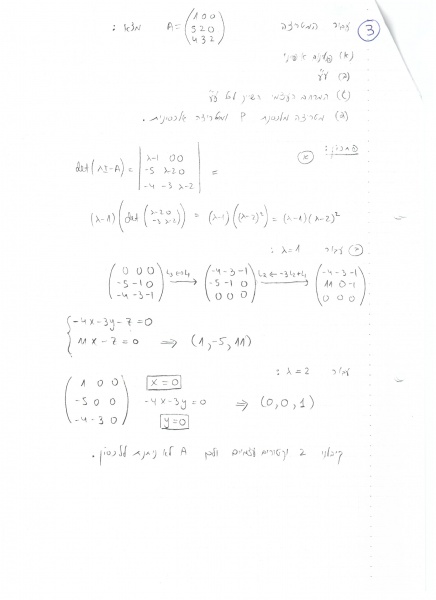 ③ עבור המטריצה A = (1 0 0 / 5 2 0 / 4 3 2) מצא:
(א) פולינום אופייני
(ב) ע"ע
(ג) המרחב העצמי השייך לכל ע"ע
(ד) מטריצה מלכסנת P ומטריצה אלכסונית.
פתרון:
א
det(λI-A) = | λ-1 0 0 / -5 λ-2 0 / -4 -3 λ-2 | =
(λ-1)(det(λ-2 0 / -3 λ-2)) = (λ-1)((λ-2)²) = (λ-1)(λ-2)²
עבור λ=1 :
(0 0 0 / -5 -1 0 / -4 -3 -1) → (-4 -3 -1 / -5 -1 0 / 0 0 0) → (-4 -3 -1 / 11 0 -1 / 0 0 0)
{ -4x-3y-z=0
11x-z=0 ⇒ (1,-5,11)
עבור λ=2 :
(1 0 0 / -5 0 0 / -4 -3 0) x=0
-4x-3y=0 ⇒ (0,0,1)
y=0
קיבלנו 2 וקטורים עצמיים ולכן A לא ניתנת ללכסון.